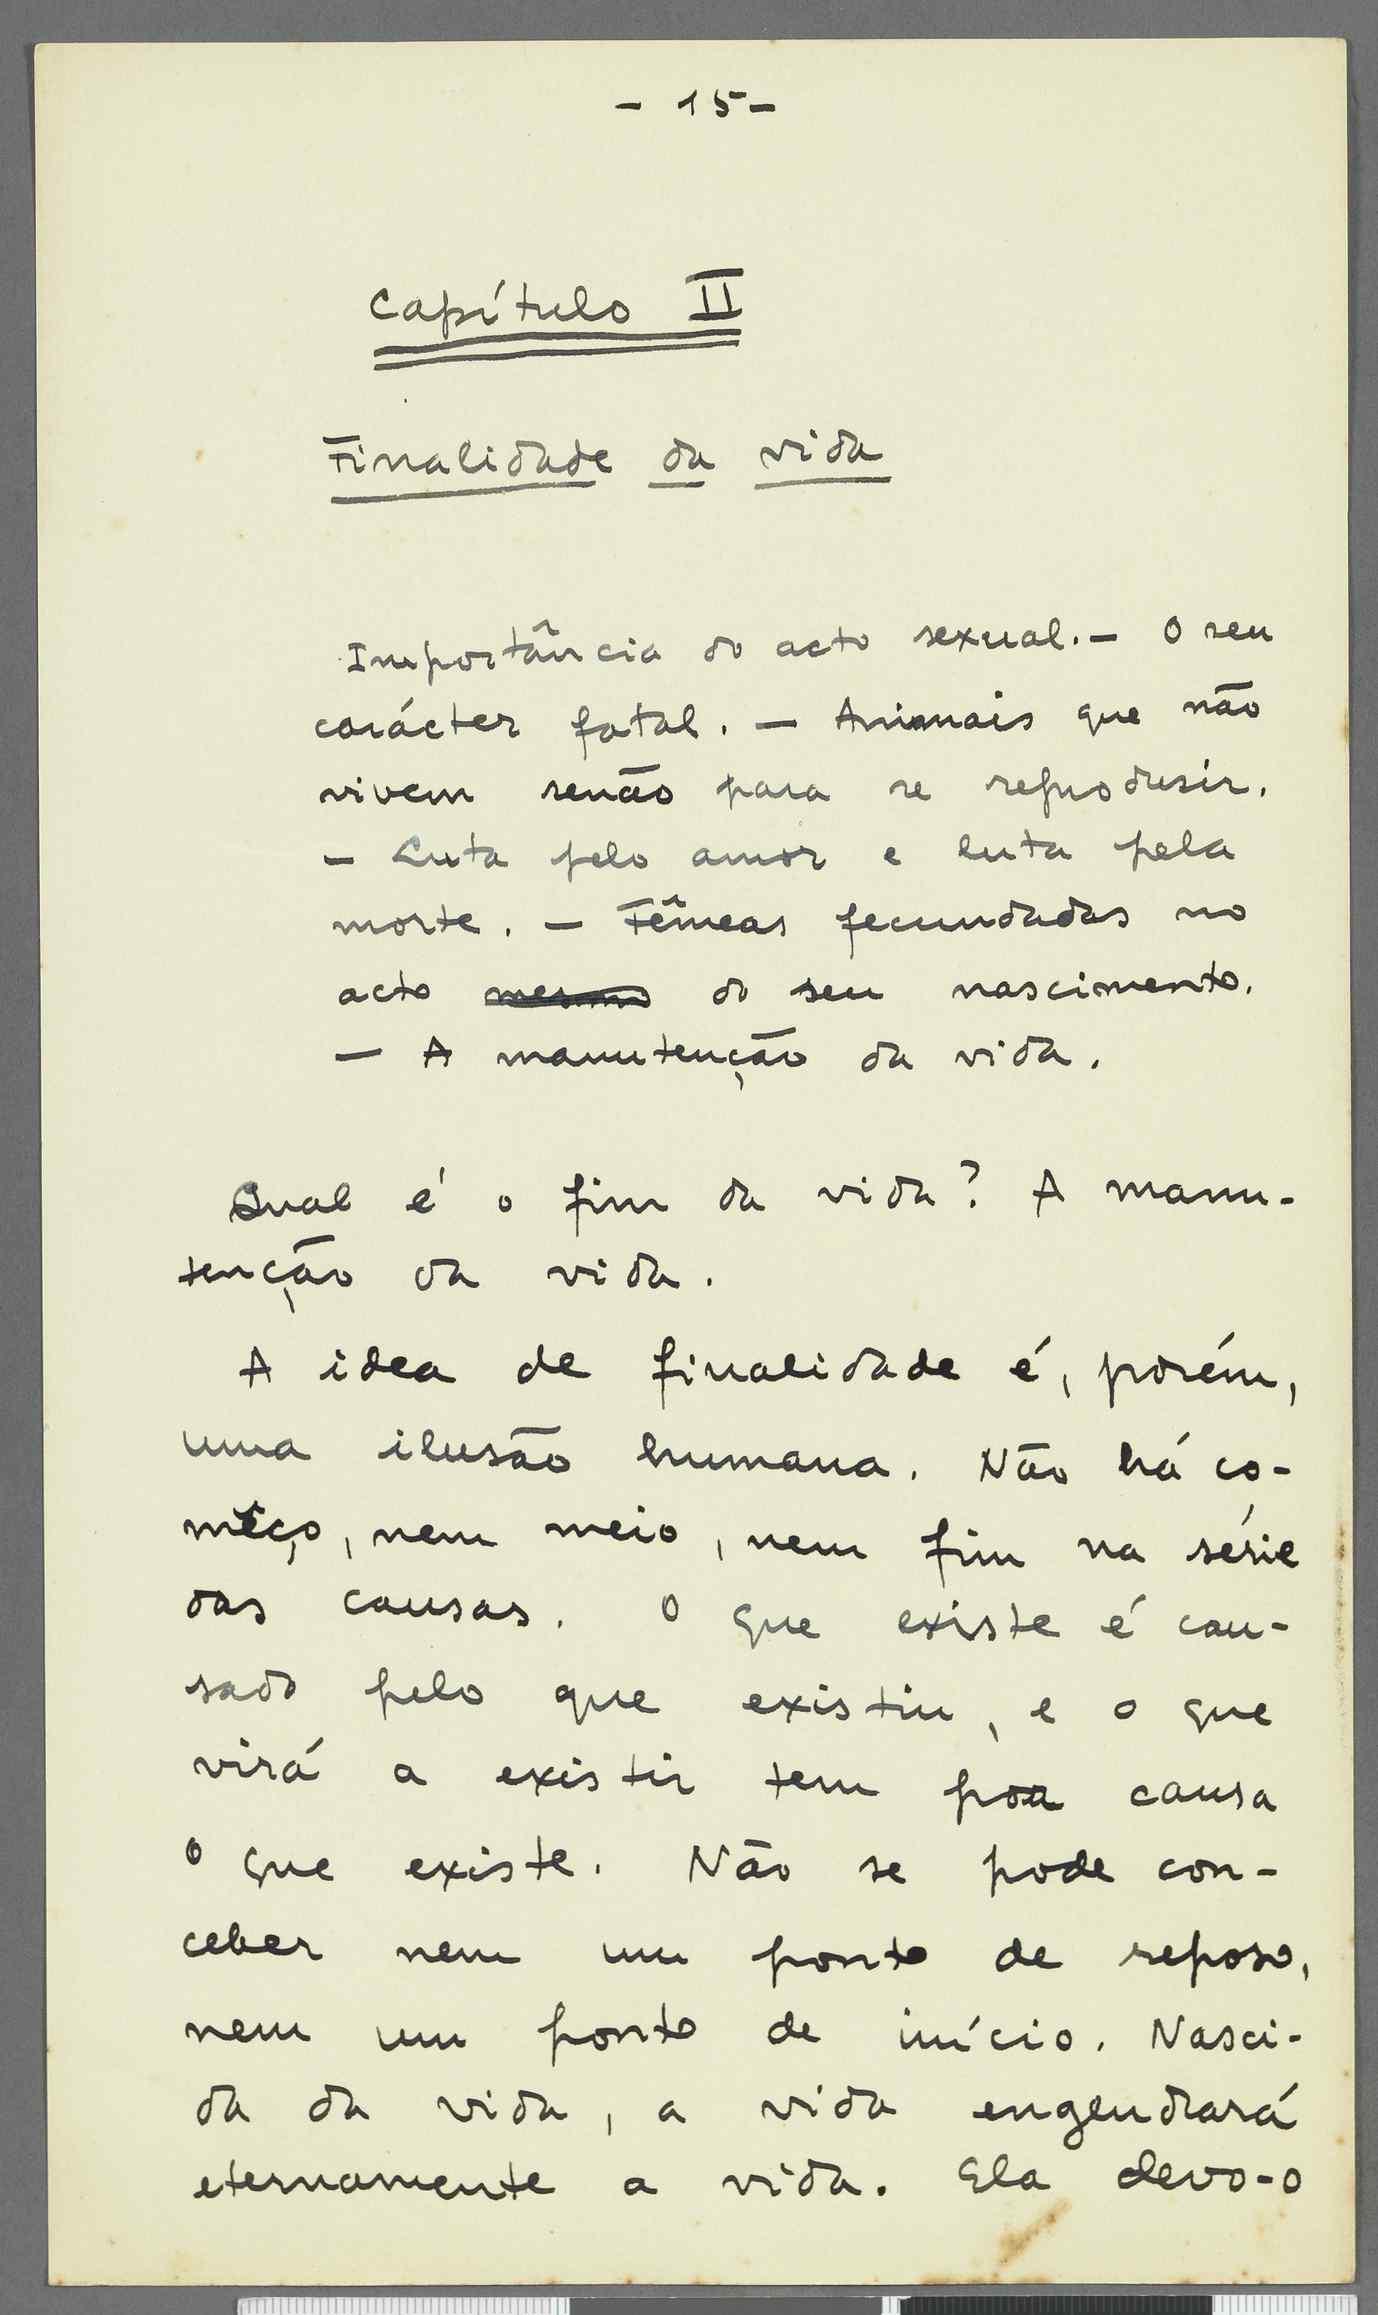 - 15 -
Capítulo II
Finalidade da vida
Importância do acto sexual. - O seu
carácter fatal. - Animais que não
vivem senão para se reprodusir.
- Luta pelo amor e luta pela
morte. - Fêmeas fecundadas no
acto mesmo do seu nascimento.
- A manutenção da vida.
Qual é o fim da vida? A manu-
tenção da vida.
A idea de finalidade é, porém,
uma ilusão humana. Não há co-
mêço, nem meio, nem fim na série
das causas. O que existe é cau-
sado pelo que existiu, e o que
virá a existir tem por causa
o que existe. Não se pode con-
ceber nem um ponto de reposo,
nem um ponto de início. Nasci-
da da vida, a vida engendrará
eternamente a vida. Ela devo-o